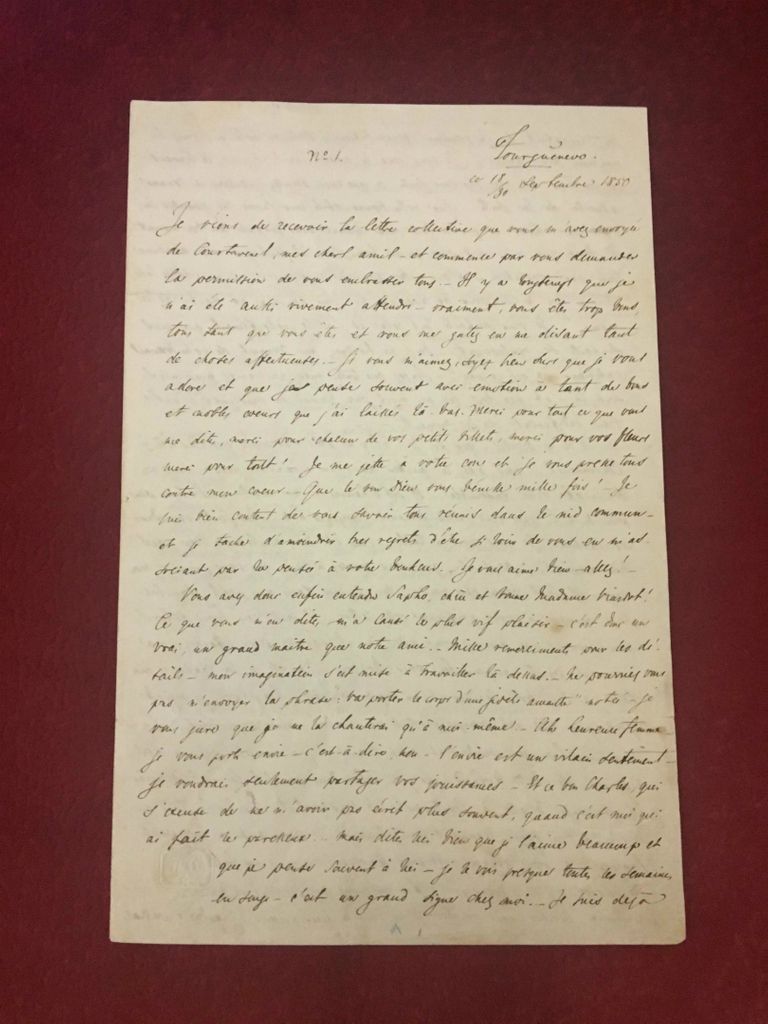 No 1.
Tourguénevo.
ce 18/30 Septembre 1850
Je viens de recevoir la lettre collective que vous m'avez envoyée
de Courtavenel, mes chers amis – et commence par vous demander
la permission de vous embrasser tous. – Il y a longtemps que je
n'ai été aussi vivement attendri – vraiment, vous êtes trop bons,
tous tant que vous êtes et vous me gâtez en me disant tant
de choses affectueuses. – Si vous m'aimez, soyez bien sûrs que je vous
adore et que je pense souvent avec émotion à tant de bons
et nobles coeurs que j'ai laissés là-bas. Merci pour tout ce que vous
me dites, merci pour chacun de vos petits billets, merci pour vos fleurs
merci pour tout! Je me jette à votre cou et je vous presse tous
contre mon coeur – Que le bon Dieu vous bénisse mille fois! – Je
suis bien content de vous savoir tous réunis dans le nid commun –
et je tâche d'amoindrir mes regrets d'être si loin de vous en m'as-
sociant par la pensée à votre bonheur. – Je vous aime bien – allez! –
Vous avez donc enfin entendu Sapho, chère et bonne Madame Viardot!
Ce que vous m'en dites, m'a causé le plus vif plaisir – c'est donc un
vrai, un grand maître que notre ami. – Mille remerciments pour les dé-
tails – mon imagination s'est mise à travailler là dessus. – Ne pourriez vous
pas m'envoyer la phrase: "va porter le corps d'une fidèle amante" notée – je
vous jure que je ne la chanterai qu'à moi-même – Ah! heureuse femme
je vous porte envie – c'est-à-dire, non – l'envie est un vilain sentiment –
je voudrais seulement partager vos jouissances – Et ce bon Charles, qui
s'excuse de ne m'avoir pas écrit plus souvent, quand c'est moi qui
ai fait le paresseux. – Mais dites lui bien que je l'aime beaucoup et
que je pense souvent à lui – je le vois presque toutes les semaines
en songe – c'est un grand signe chez moi. – Je suis déjà